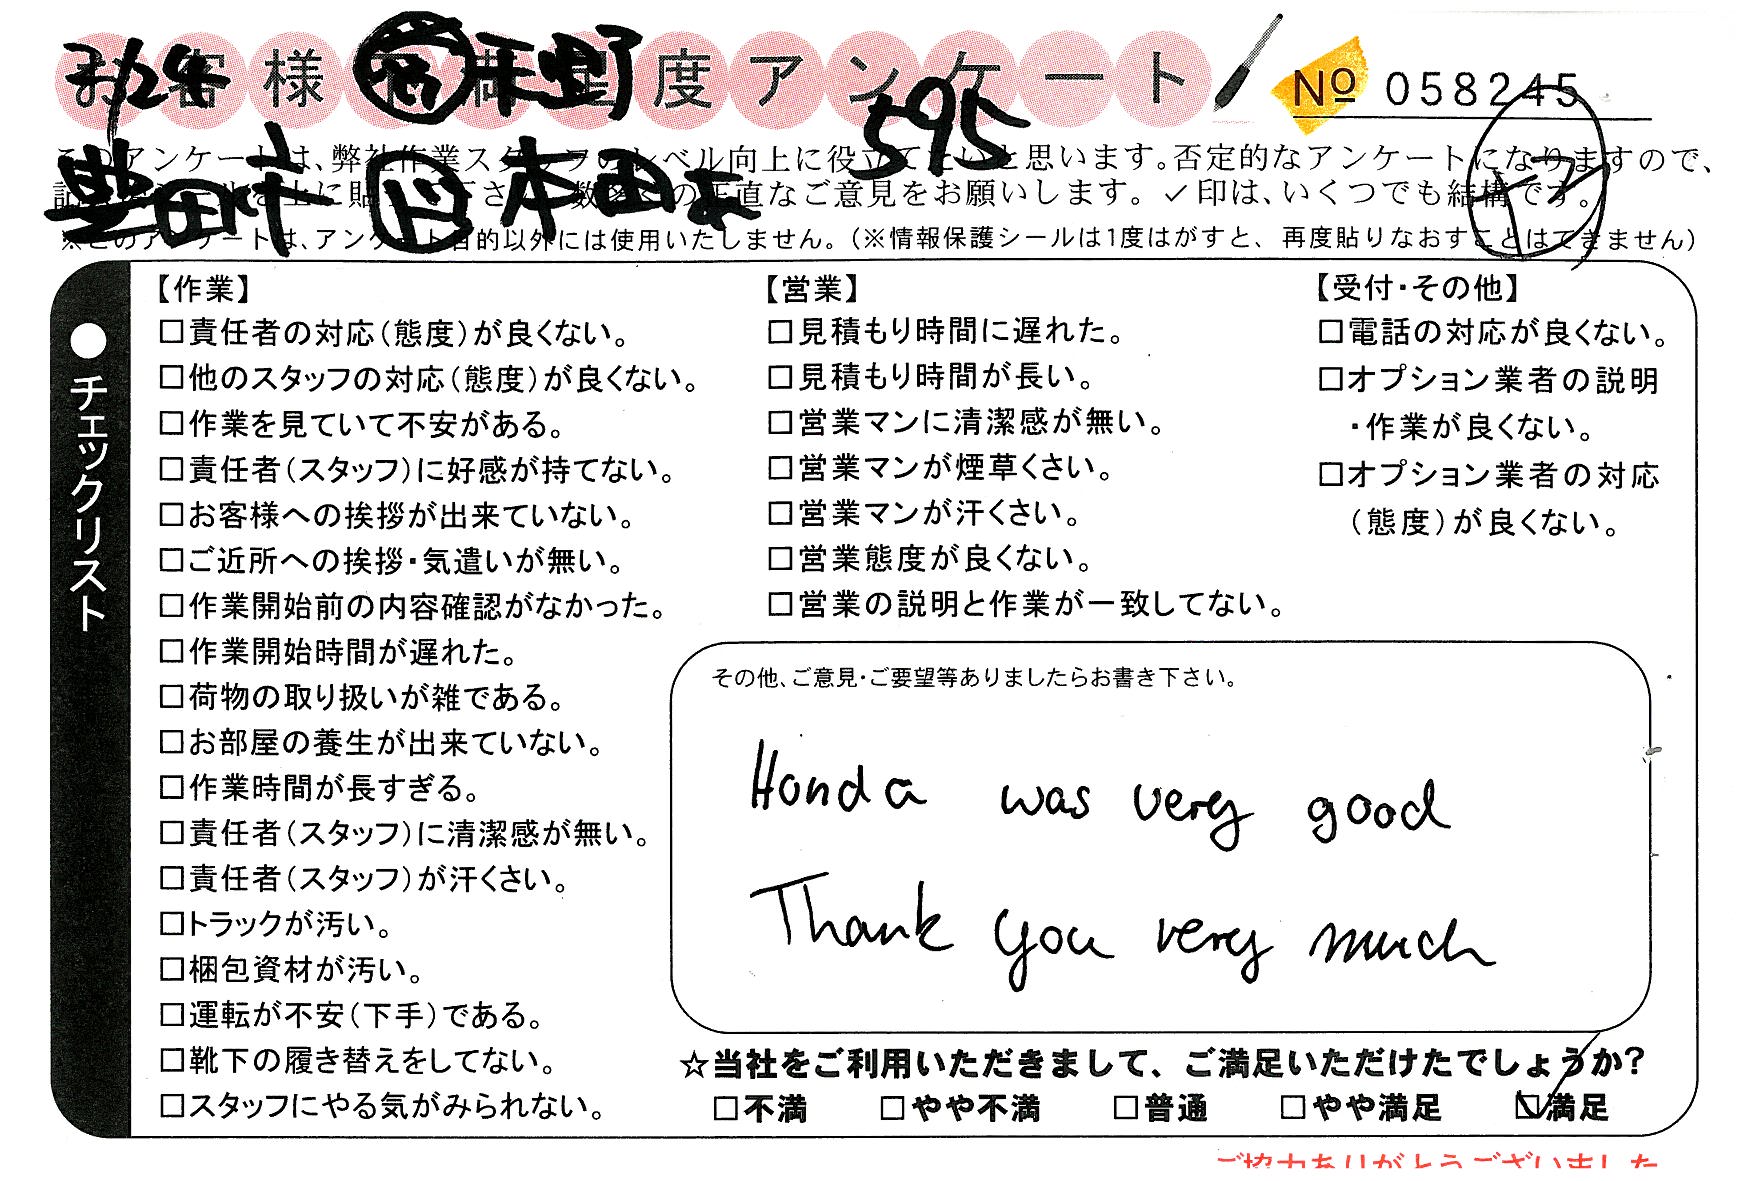 お客様満足度アンケート
No 058245
595
このアンケートは、弊社作業スタッフのレベル向上に役立てたいと思います。否定的なアンケートになりますので、
数多くの正直なご意見をお願いします。✓印は、いくつでも結構です。
※このアンケートは、アンケート目的以外には使用いたしません。(※情報保護シールは1度はがすと、再度貼りなおすことはできません)
●チェックリスト
【作業】
□責任者の対応(態度)が良くない。
□他のスタッフの対応(態度)が良くない。
□作業を見ていて不安がある。
□責任者(スタッフ)に好感が持てない。
□お客様への挨拶が出来ていない。
□ご近所への挨拶・気遣いが無い。
□作業開始前の内容確認がなかった。
□作業開始時間が遅れた。
□荷物の取り扱いが雑である。
□お部屋の養生が出来ていない。
□作業時間が長すぎる。
□責任者(スタッフ)に清潔感が無い。
□責任者(スタッフ)が汗くさい。
□トラックが汚い。
□梱包資材が汚い。
□運転が不安(下手)である。
□靴下の履き替えをしてない。
□スタッフにやる気がみられない。
【営業】
□見積もり時間に遅れた。
□見積もり時間が長い。
□営業マンに清潔感が無い。
□営業マンが煙草くさい。
□営業マンが汗くさい。
□営業態度が良くない。
□営業の説明と作業が一致してない。
【受付・その他】
□電話の対応が良くない。
□オプション業者の説明
・作業が良くない。
□オプション業者の対応
(態度)が良くない。
その他、ご意見・ご要望等ありましたらお書き下さい。
Honda was very good
Thank you very much
☆当社をご利用いただきまして、ご満足いただけたでしょうか?
□不満 □やや不満 □普通 □やや満足 ☑満足
ご協力ありがとうございました